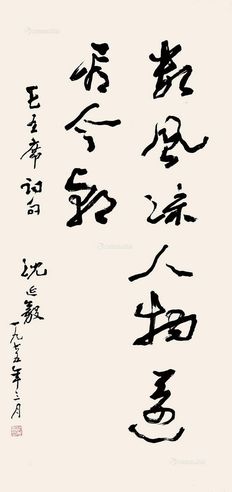 数风流人物还
看今朝
毛主席词句
沈延毅
一九七五年三月